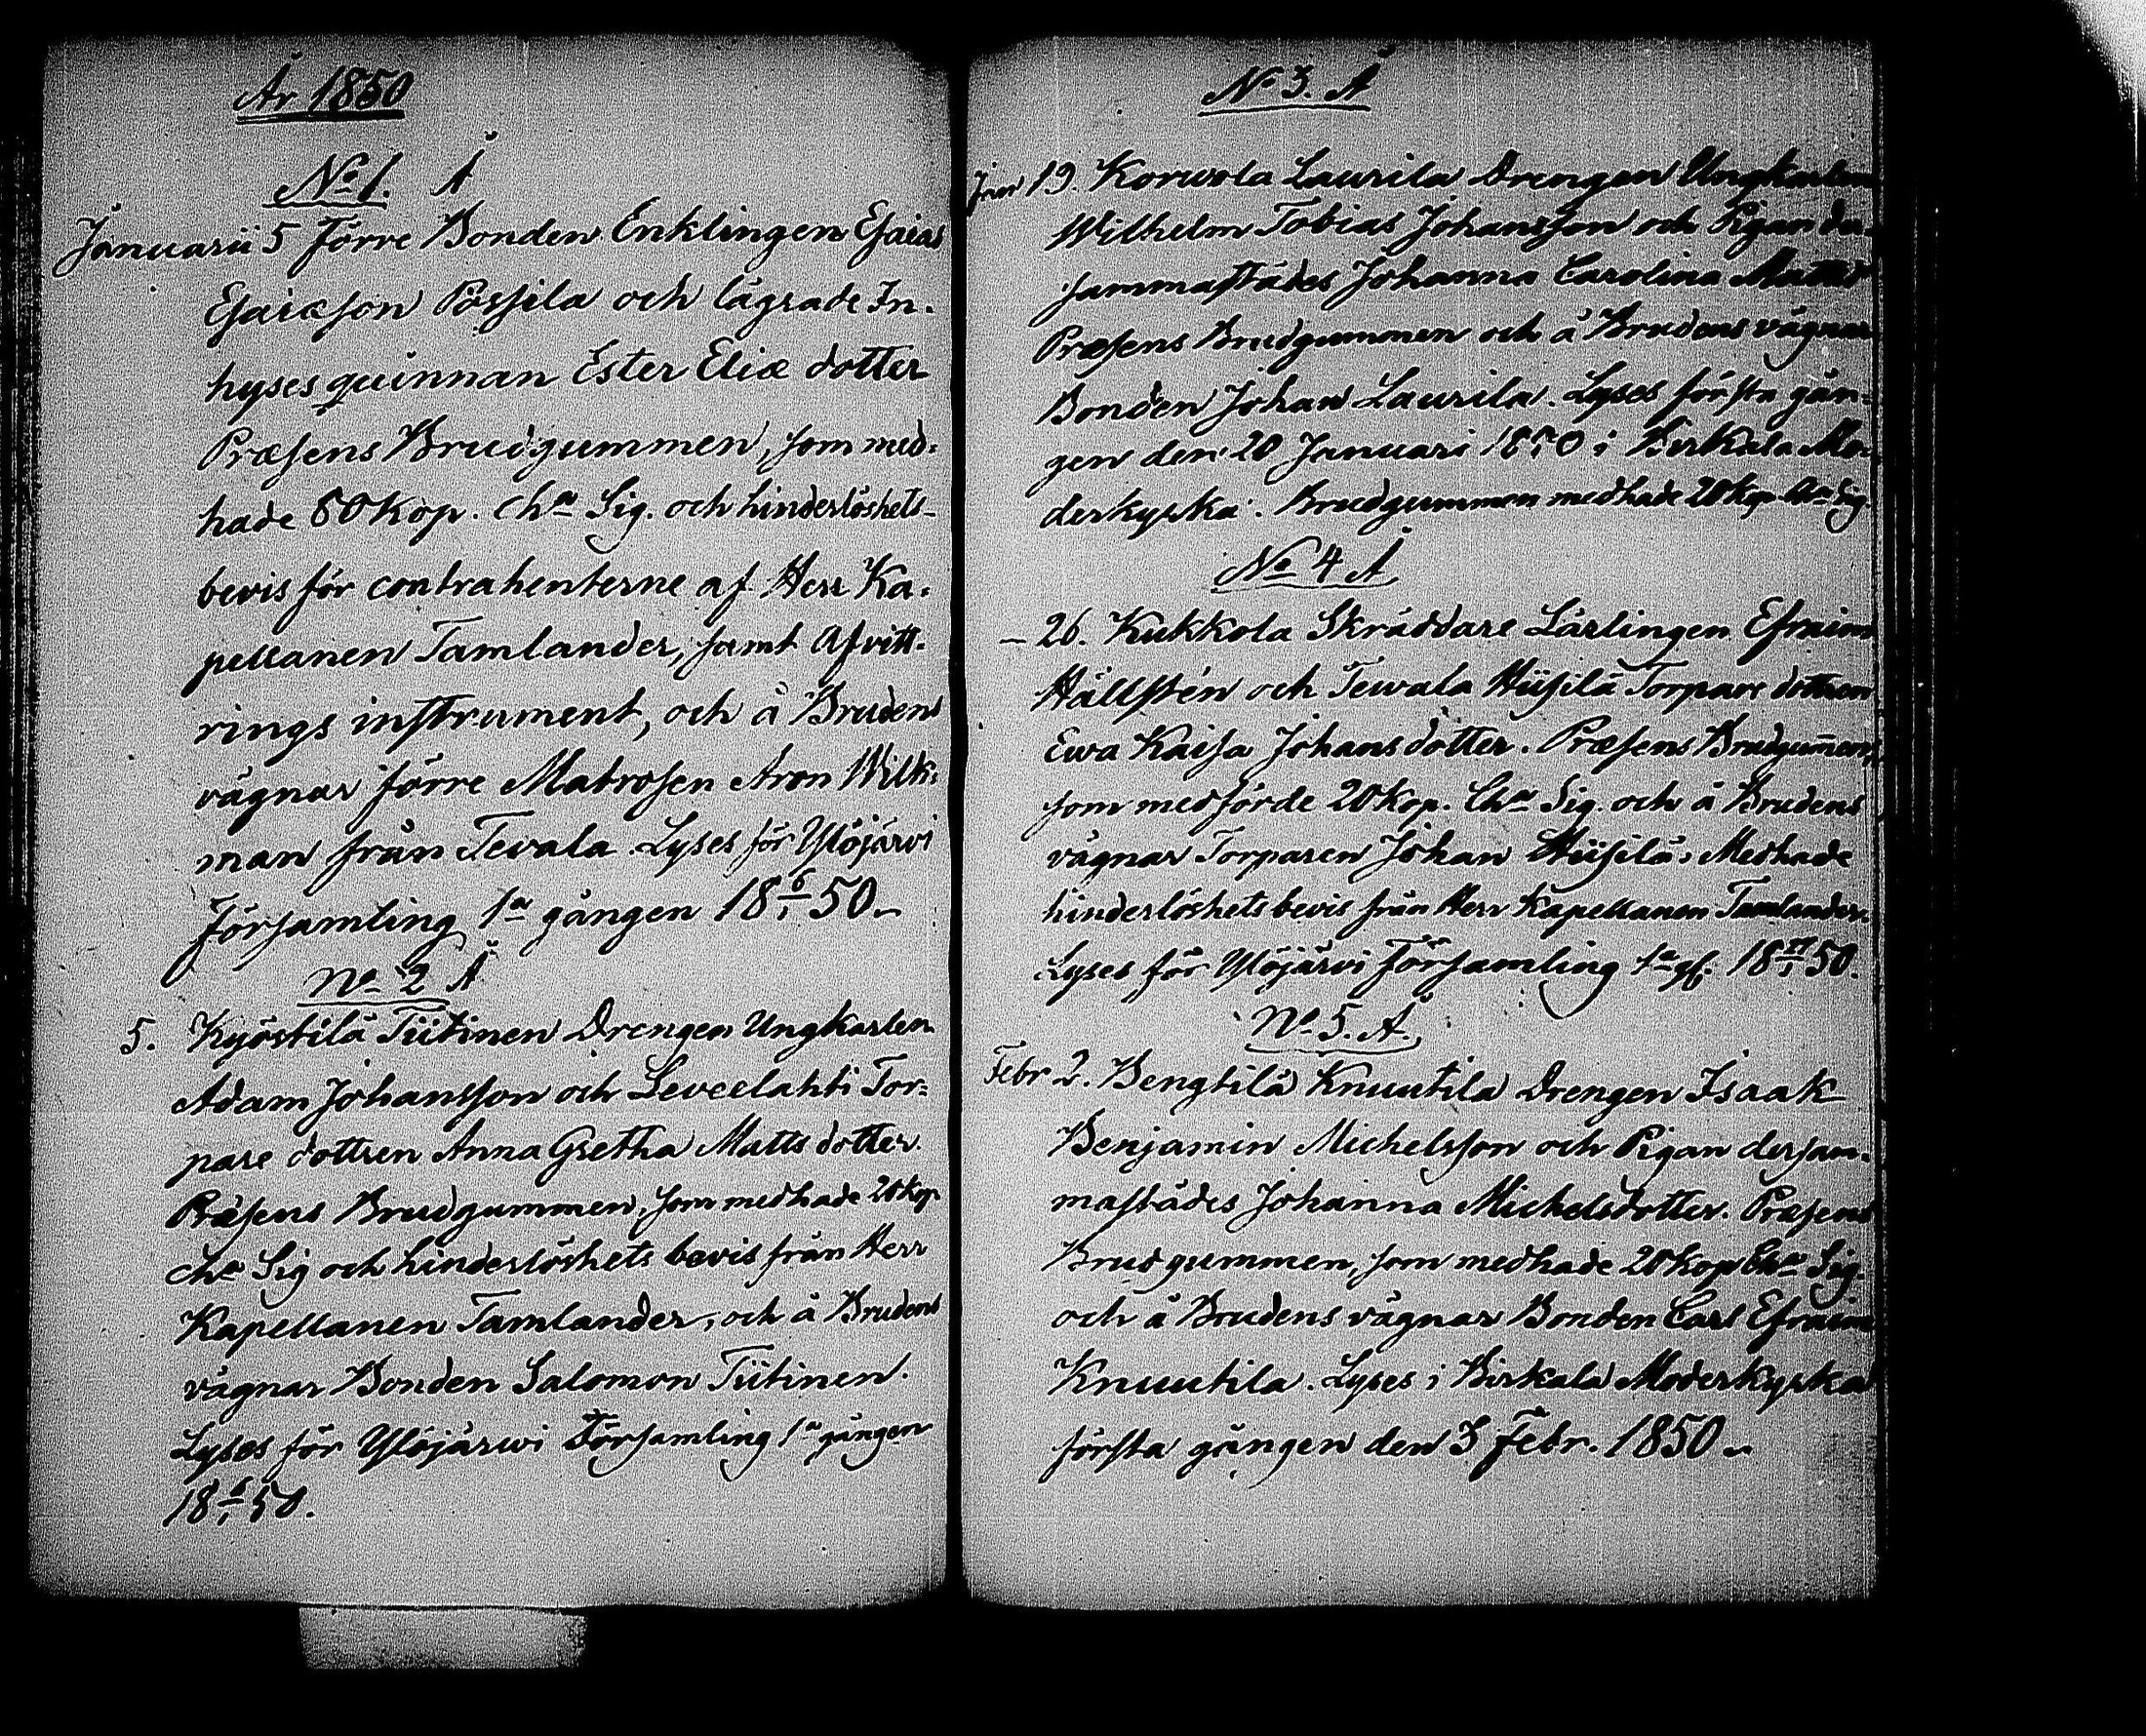 År 1850
No 1. Å
Januarii 5 Förre Bonden Enklingen Esaias
Esaiæson Pässilä och lägrade In-
hyses quinnan Ester Eliæ dotter
Præsens Brudgummen, som med-
hade 80 Kop. Cha Sig. och hinderlöshets-
bevis för contrahenterne af Herr Ka-
pellanen Tamlander, samt Afvitt-
rings instrument, och å Brudens
vägnar förre Matrosen Aron Wilk-
man från Tevala. Lyses för Ylöjärvi
Församling 1a gången 18 6/1 50.
No 2 Å
5. Kyöstilä Tiitinen Drengen Ungkarlen
Adam Johansson och Leveelahti Tor-
pare dottren Anna Gretha Matts dotter.
Præsens Brudgummen, som medhade 20 Kop
Cha Sig och hinderlöshets bevis från Herr
Kapellanen Tamlander, och å Brudens
vägnar Bonden Salomon Tiitinen.
Lyses för Ylöjärwi Församling 1a gången
18 6/1 50.
No 3. Å
Jan 19. Korwola Laurila Drengen Ungkarlen
Wilhelm Tobias Johansson och Pigan der-
sammastädes Johanna Carolina Matts dr
Præsens Brudgummen och å Brudens vägnar
Bonden Johan Laurila. Lyses första gån-
gen den 20 Januari 1850 i Birkala Mo-
derkyrka. Brudgummen medhade 20 Kop. Cha Sig.
No 4 Å
- 26. Kukkola Skräddare Lärlingen Efraim
Hällstén och Tewala Hiisilä Torpare dottren
Ewa Kaisa Johans dotter. Præsens Brudgummen,
som medförde 20 Kop. Cha Sig. och å Brudens
vägnar Torparen Johan Hiisilä. Medhade
hinderlöshets bevis från Herr Kapellanen Tamlander.
Lyses för Ylöjärvi Församling 1a gg. 18 27/1 50.
No 5. Å.
Febr 2. Bengtilä Knuutila Drengen Isaak
Benjamin Michelsson och Pigan dersam-
mastädes Johanna Michelsdotter. Præsens
Brudgummen, som medhade 20 Kop Cha Sig.
och å Brudens vägnar Bonden Carl Efraim
Knuutila. Lyses i Birkala Moderkyrka
första gången den 3 Febr. 1850.